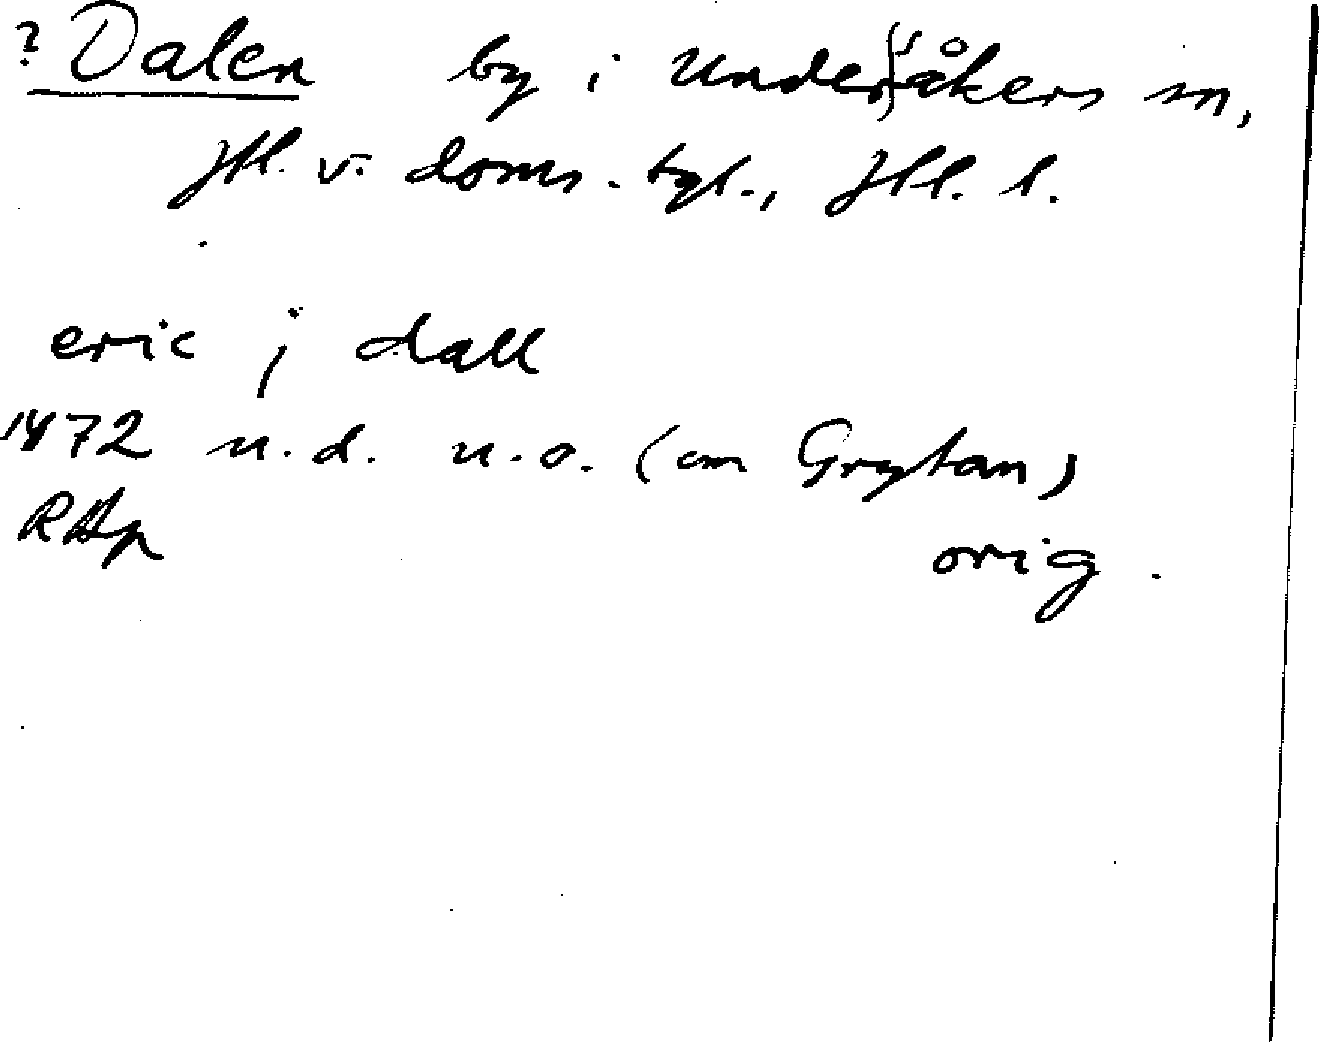 ? Dalen by i Undersåkers sn,
Jtl. v. doms. tgl., Jtl. l.
eric j dall
1472 u.d. u.o. (om Grytan)
RAp
orig.